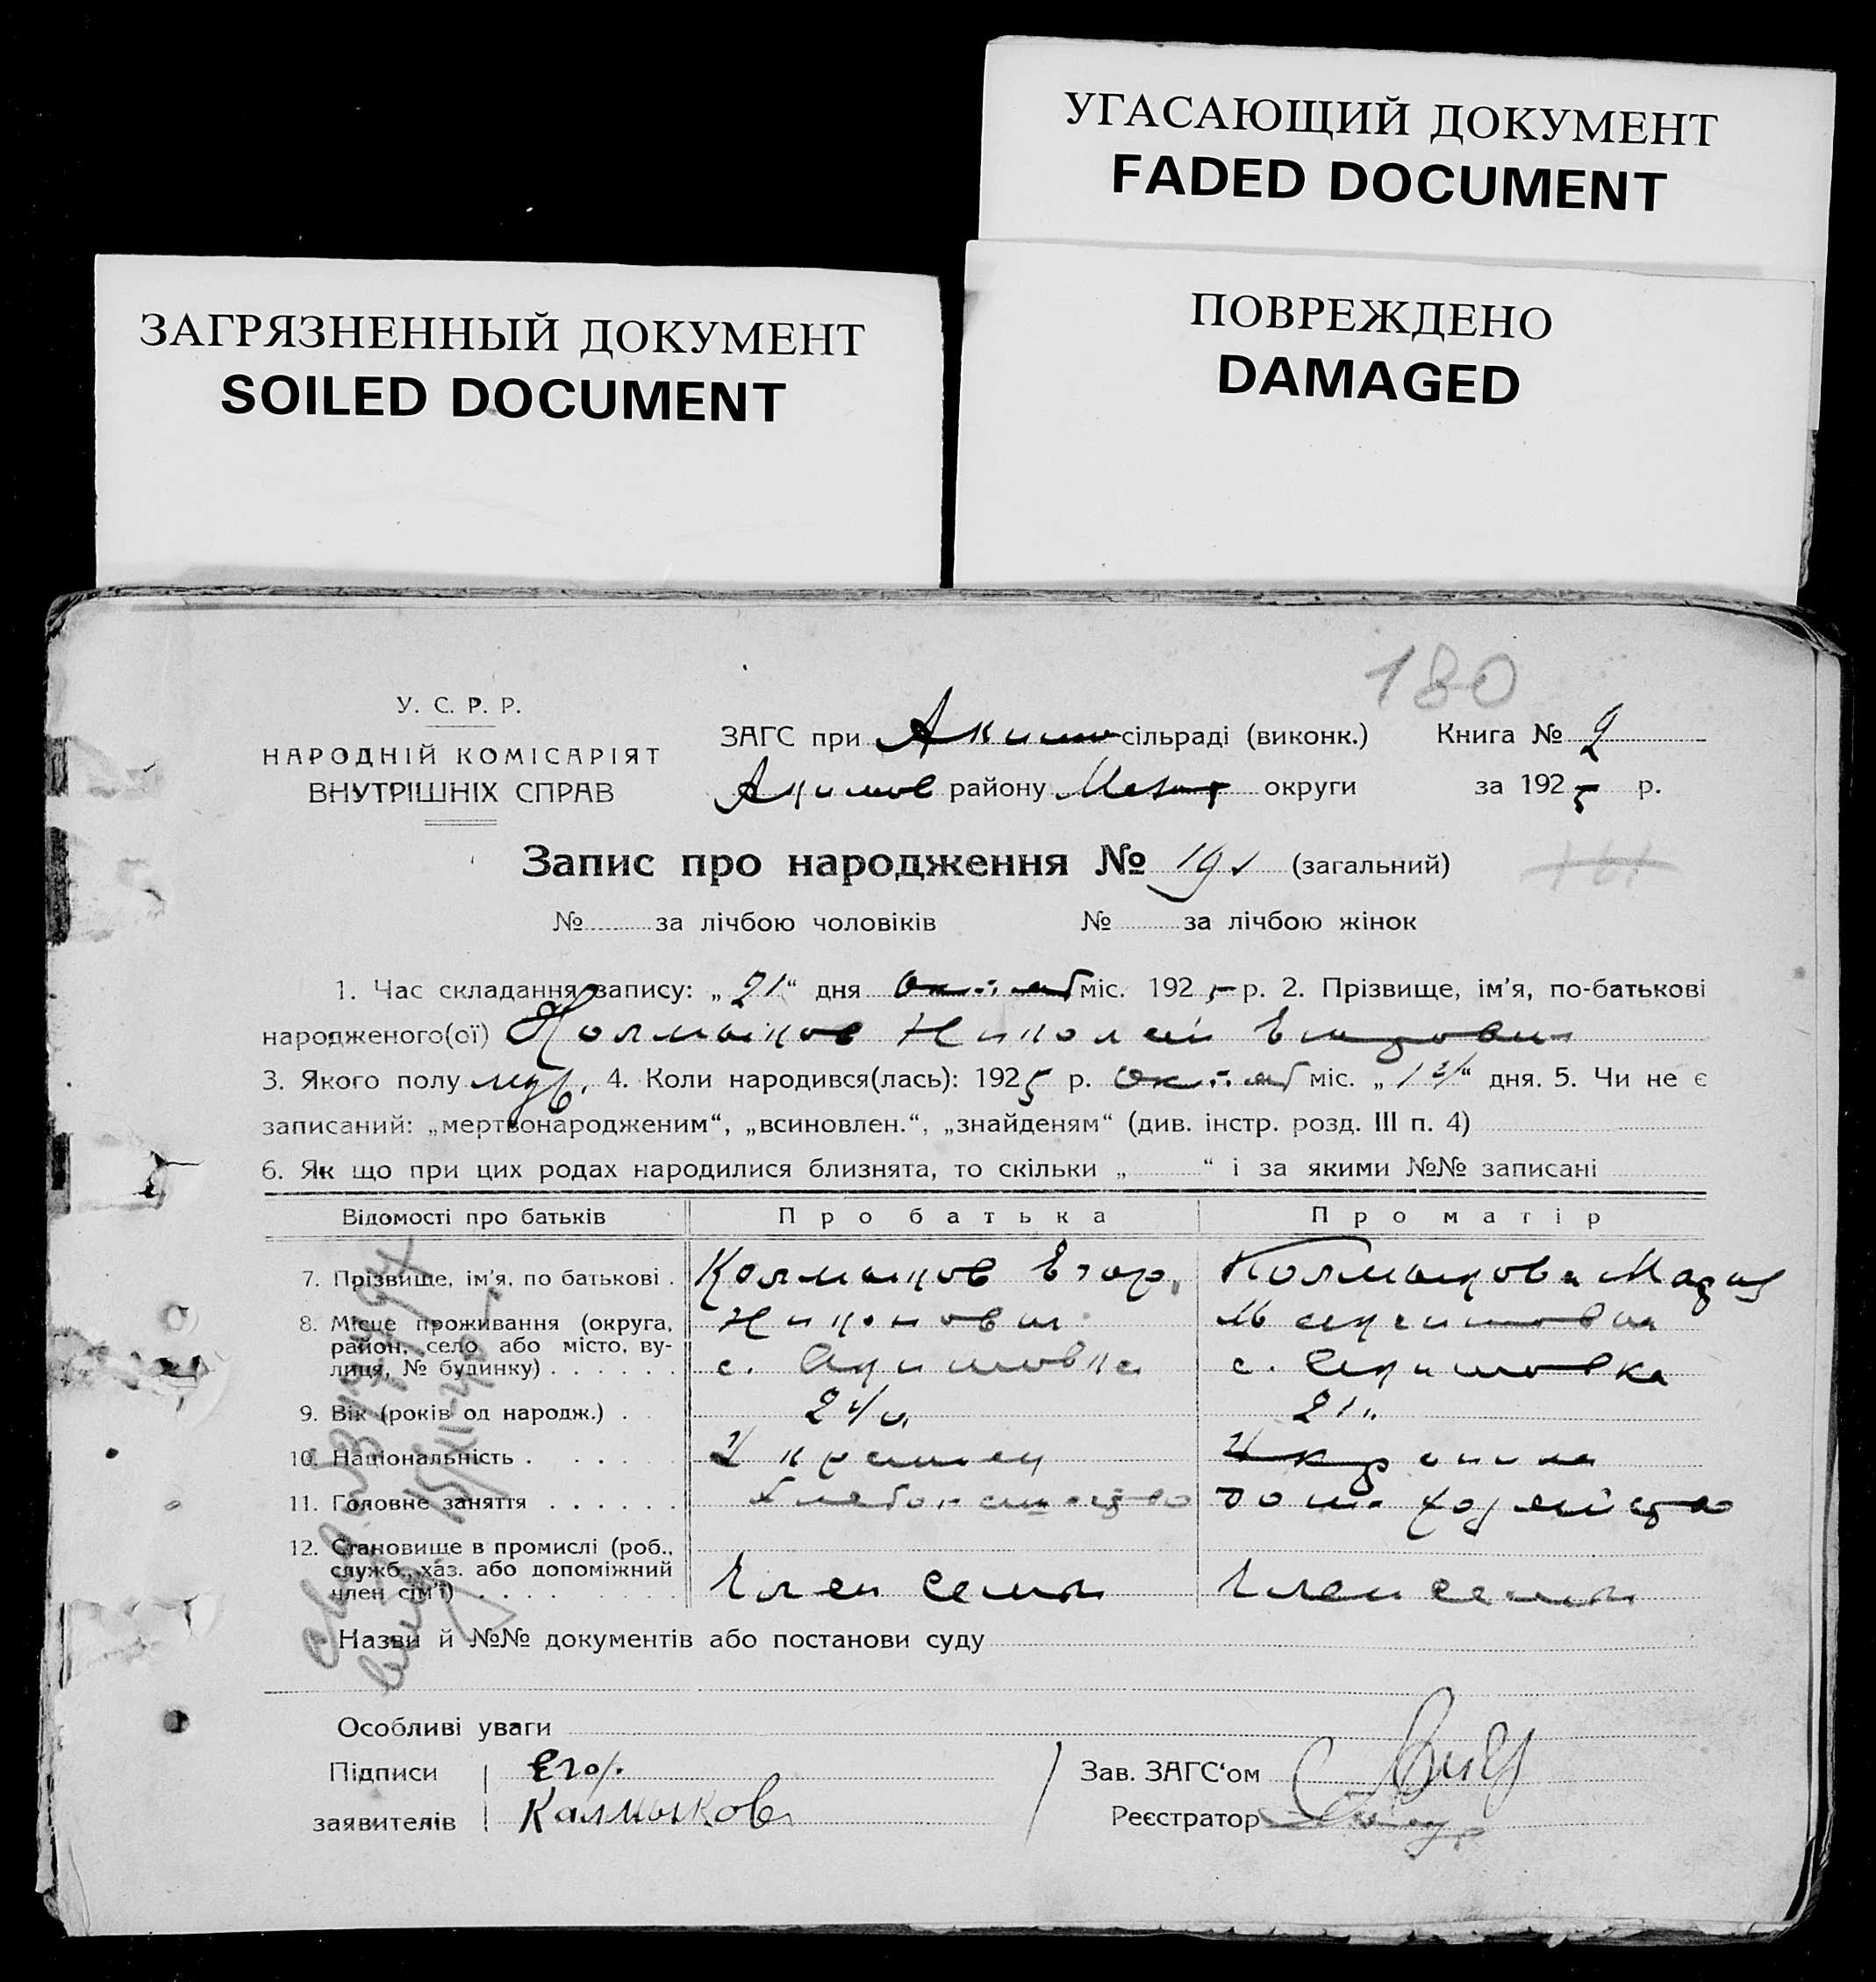 УГАСАЮЩИЙ ДОКУМЕНТ
FADED DOCUMENT
ЗАГРЯЗНЕННЫЙ ДОКУМЕНТ
SOILED DOCUMENT
ПОВРЕЖДЕНО
DAMAGED
180
У. С. Р. Р.
НАРОДНІЙ КОМІСАРІЯТ
ВНУТРІШНІХ СПРАВ
ЗАГС при Акимо сільраді (виконк.) Книга № 2
Акимов району округи за 1925 р.
Запис про народження № 191 (загальний)
№ за лічбою чоловіків № за лічбою жінок
1. Час складання запису: „21“ дня октяб міс. 1925 р. 2. Прізвище, ім'я, по-батькові
народженого(ої) Колмыков Николай Егорович
3. Якого полу муж. 4. Коли народився(лась): 1925 р. октяб міс. „ “ дня. 5. Чи не є
записаний: „мертвонародженим“, „всиновлен.“, „знайденям“ (див. інстр. розд. III п. 4)
6. Як що при цих родах народилися близнята, то скільки „ “ і за якими №№ записані
Відомості про батьків Про батька Про матір
7. Прізвище, ім'я, по батькові . Колмыков Егор Колмыкова Мария
8. Місце проживання (округа, район, село або місто, вулиця, № будинку) . . . . . .
Никонович
с. Акимовка с. Акимовка
9. Вік (років од народж.) . . 21
10. Національність . . . . . Украинец Украинка
11. Головне заняття . . . . . . Хлебопашество дом. хозяйство
12. Становище в промислі (роб., служб., хаз. або допоміжний член сім'ї) . . . . Член семьи Член семьи
Назви й №№ документів або постанови суду
Особливі уваги
Підписи заявителів Егор
Калмыков
Зав. ЗАГС‘ом
Реєстратор